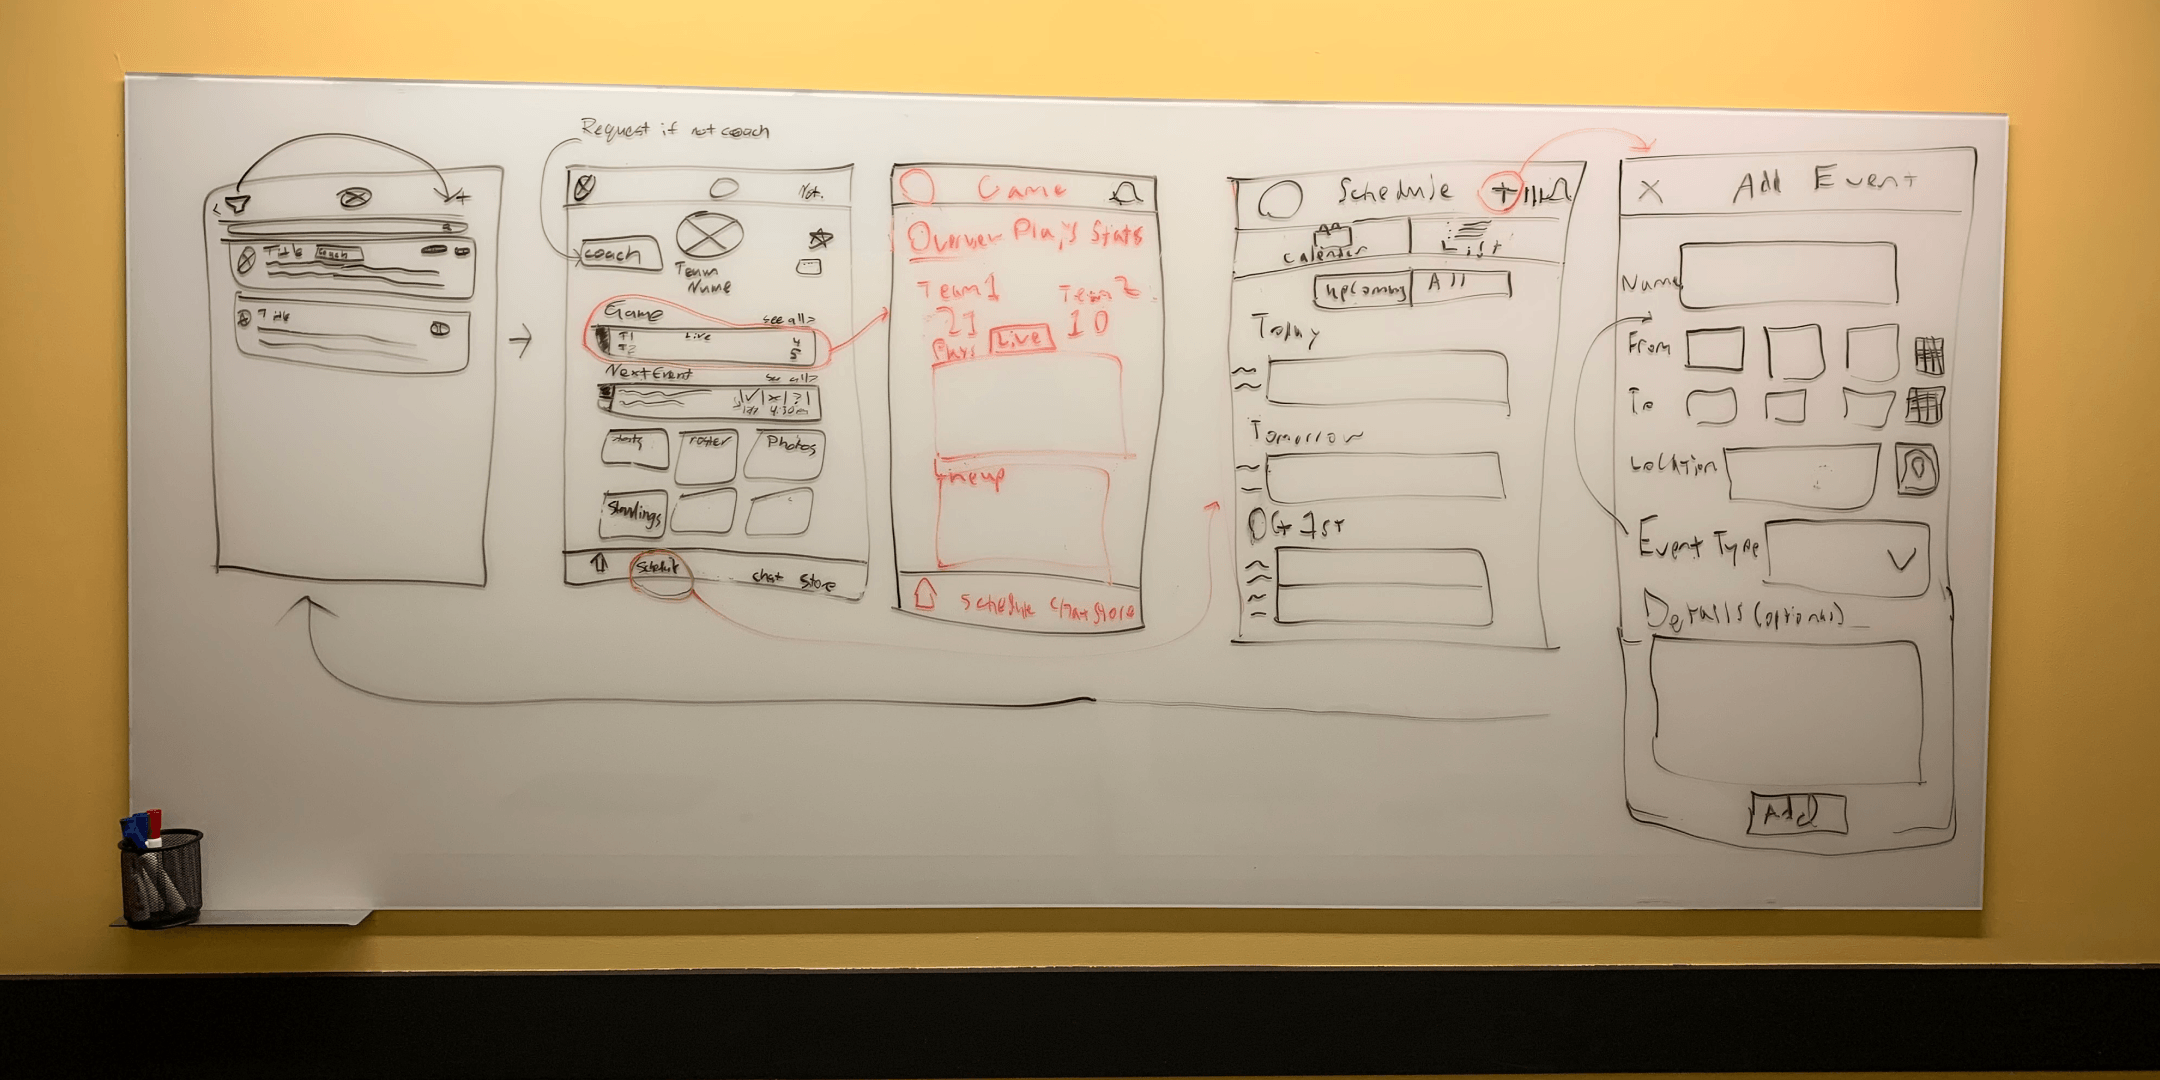 Request if not coach
Title coach
Title
Not.
coach
Team
Name
Game see all>
T1 Live 4
T2 5
Next Event see all>
4:30
roster Photos
Standings
chat Store
Game
Plays Stats
Team 1 Team 2
21 10
Live
Plays
Lineup
Schedule Chat Store
Schedule +
Calender List
Upcoming All
Today
Tomorrow
Oct 1st
X Add Event
Name
From
To
Location
Event Type
Details (optional)
Add